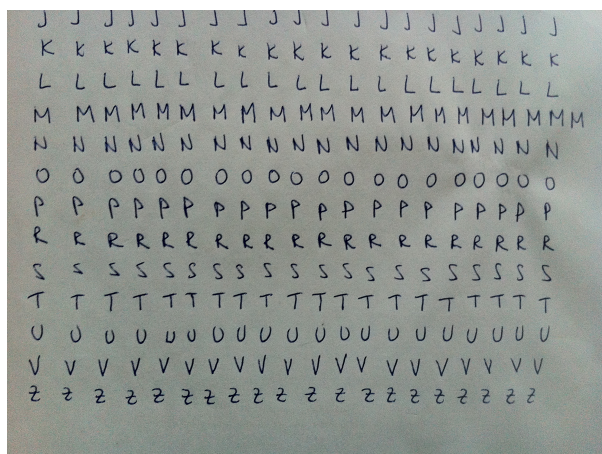 J J J J J J J J J J J J J J J J J J J J
K K K K K K K K K K K K K K K K K K K K
L L L L L L L L L L L L L L L L L L L L
M M M M M M M M M M M M M M M M M M M M M
N N N N N N N N N N N N N N N N N N N N
O O O O O O O O O O O O O O O O O O O O
P P P P P P P P P P P P P P P P P P P P
R R R R R R R R R R R R R R R R R R R R
S S S S S S S S S S S S S S S S S S S S
T T T T T T T T T T T T T T T T T T T T
U U U U U U U U U U U U U U U U U U U U
V V V V V V V V V V V V V V V V V V V V
Z Z Z Z Z Z Z Z Z Z Z Z Z Z Z Z Z Z Z Z